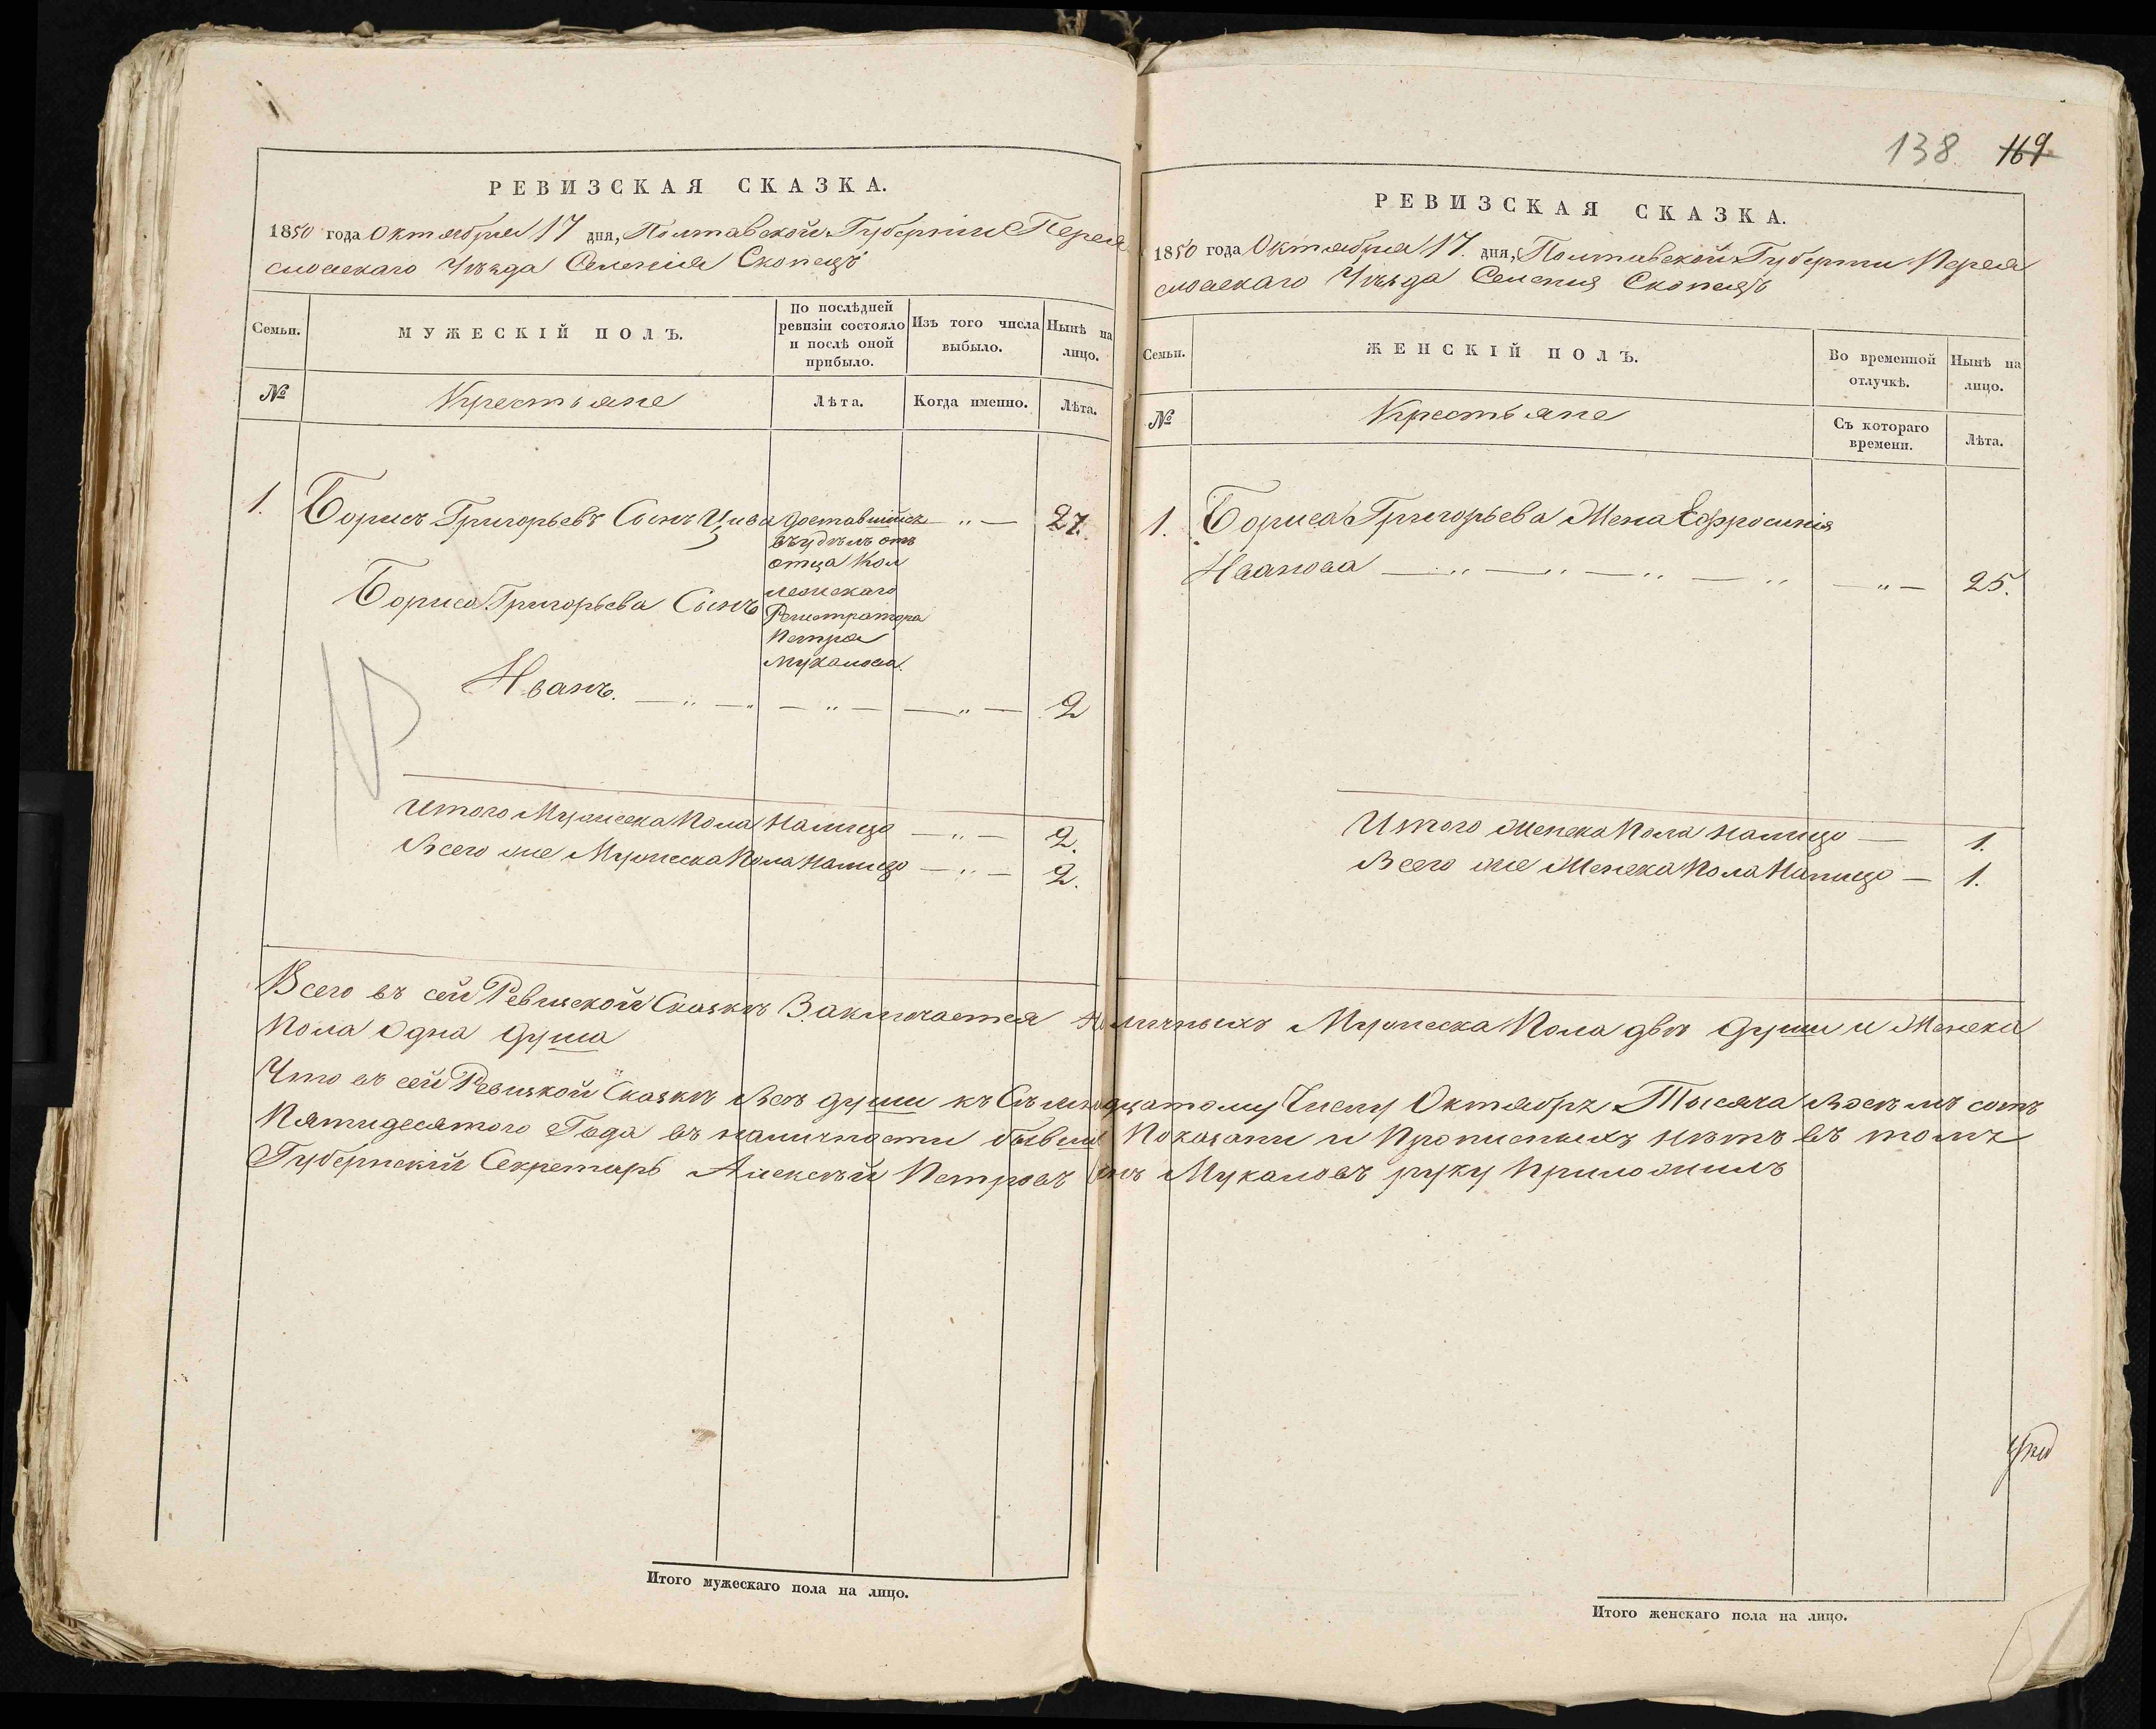 РЕВИЗСКАЯ СКАЗКА.
1850 года Октября 17 дня, Полтавской Губернии Перея
словскаго Уѣзда Селенія Скопецъ
Семьи.
МУЖЕСКІЙ ПОЛЪ.
По послѣдней
ревизіи состояло
и послѣ оной
прибыло.
Изъ того числа
выбыло.
Нынѣ на
лицо.
№
Крестьяне
Лѣта.
Когда именно.
Лѣта.
1. Борисъ Григорьевъ Сынъ 27.
доставшійся
въ удѣлъ отъ
отца Кол
лежскаго
Регистратора
Петра
Мукалова.
Бориса Григорьева Сынъ
Иванъ. — „ — „ — „ — — „ — 2
Итого Мужеска Пола Налицо — „ — 2.
Всего же Мужеска Пола Налицо — „ — 2.
138 169
РЕВИЗСКАЯ СКАЗКА.
1850 года Октября 17. дня, Полтавской Губернии Перея
словскаго Уѣзда Селения Скопецъ
Семьи.
ЖЕНСКІЙ ПОЛЪ.
Во временной
отлучкѣ.
Нынѣ на
лицо.
№
Крестьяне
Съ котораго
времени.
Лѣта.
1. Бориса Григорьева Жена Ефросинія
Иванова — „ — „ — „ — „ — „ — 25.
Итого Женска Пола Налицо — 1.
Всего же Женска Пола Налицо — 1.
Всего въ сей Ревизской Сказкѣ Заключается Наличныхъ Мужеска Пола двѣ души и Женска
Пола Одна душа
Что въ сей Ревизкой Сказкѣ Всѣ души къ Семнадцатому Числу Октября Тысяча Восемъ сотъ
Пятидесятого Года въ наличности бывшие Показани и Прописныхъ нѣтъ въ томъ
Губернский Секретарь Алексѣй Петровъ Сынъ Мукаловъ руку Приложилъ
Итого мужескаго пола на лицо.
Итого женскаго пола на лицо.